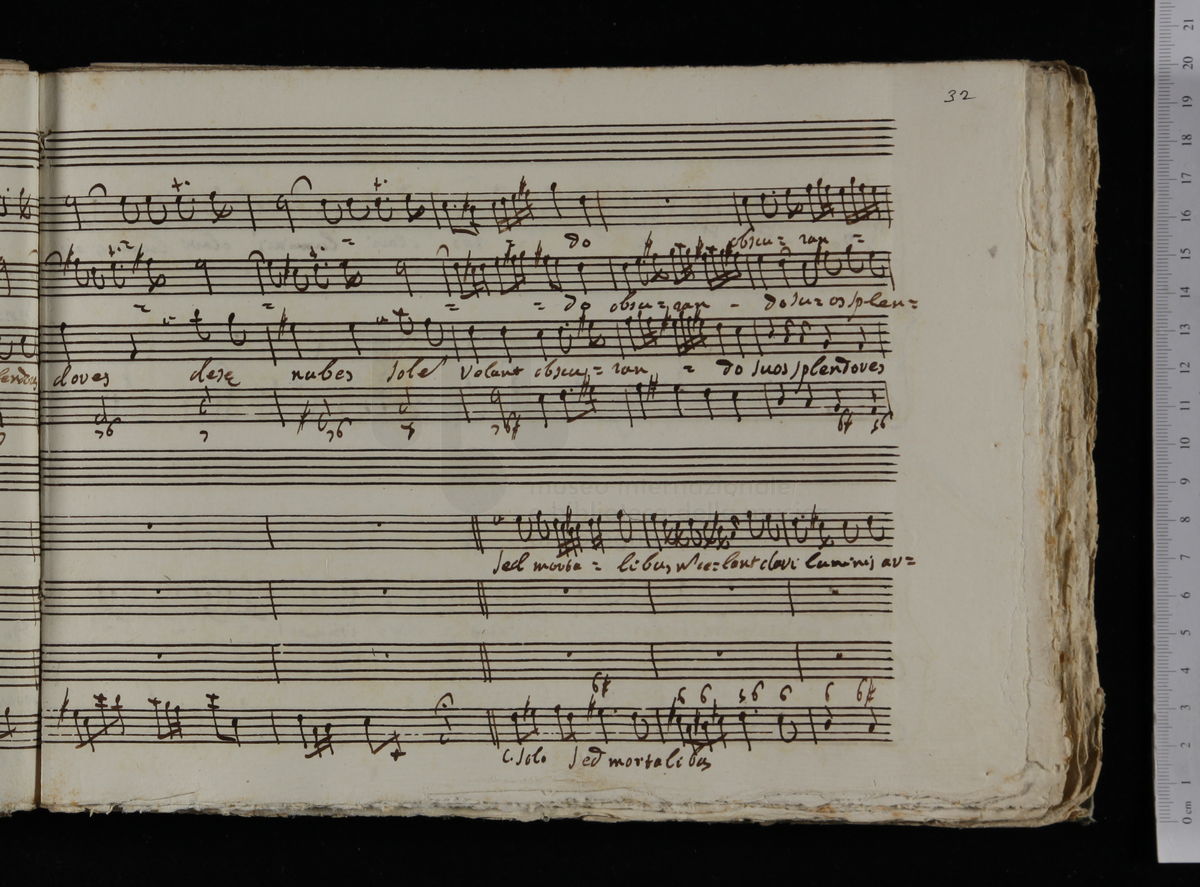 32
do obscu = ran =
= = = = do obscu = ran - do suos splen =
dores dese nubes sole volant obscu = ran = do suos splendores
76 7 76 7 76# 6# 56
museo internazionale
Sed morta = libus lant clari luminis ar =
6# 6 6 56 6 6 6#
C. solo Sed mortalibus
0 cm 1 2 3 4 5 6 7 8 9 10 11 12 13 14 15 16 17 18 19 20 21